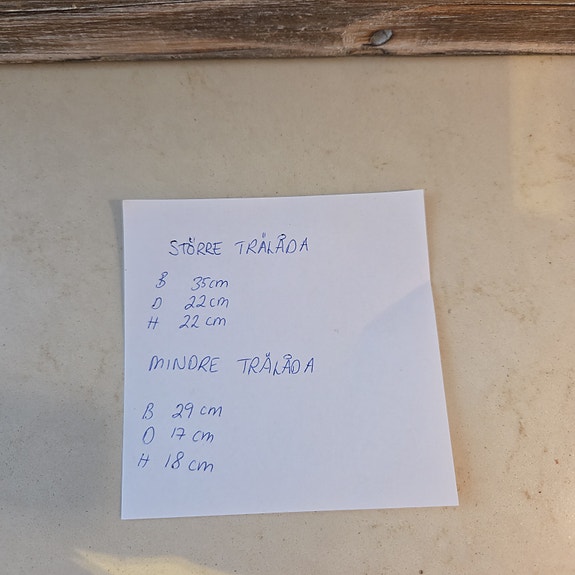 STÖRRE TRÄLÅDA
B 35cm
D 22cm
H 22cm
MINDRE TRÄLÅDA
B 29cm
D 17cm
H 18cm